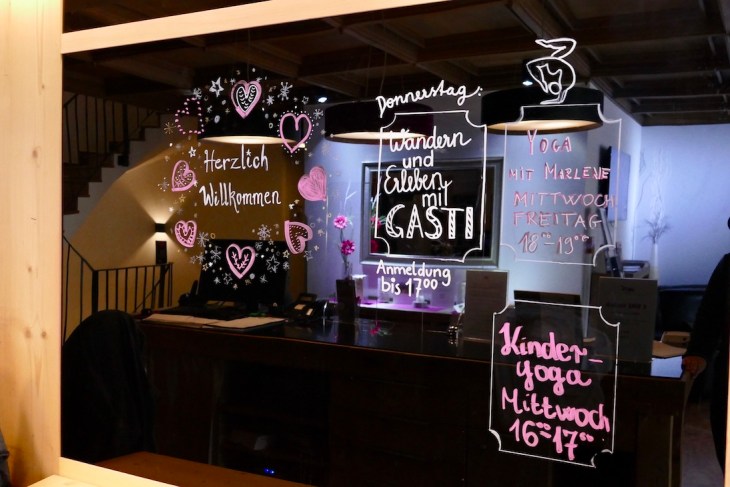 Herzlich
Willkommen
Donnerstag:
Wandern
und
Erleben
mit
GASTI
Anmeldung
bis 17⁰⁰
YOGA
MIT MARLENE
MITTWOCH
FREITAG
18⁰⁰-19⁰⁰
Kinder-
yoga
Mittwoch
16⁰⁰-17⁰⁰